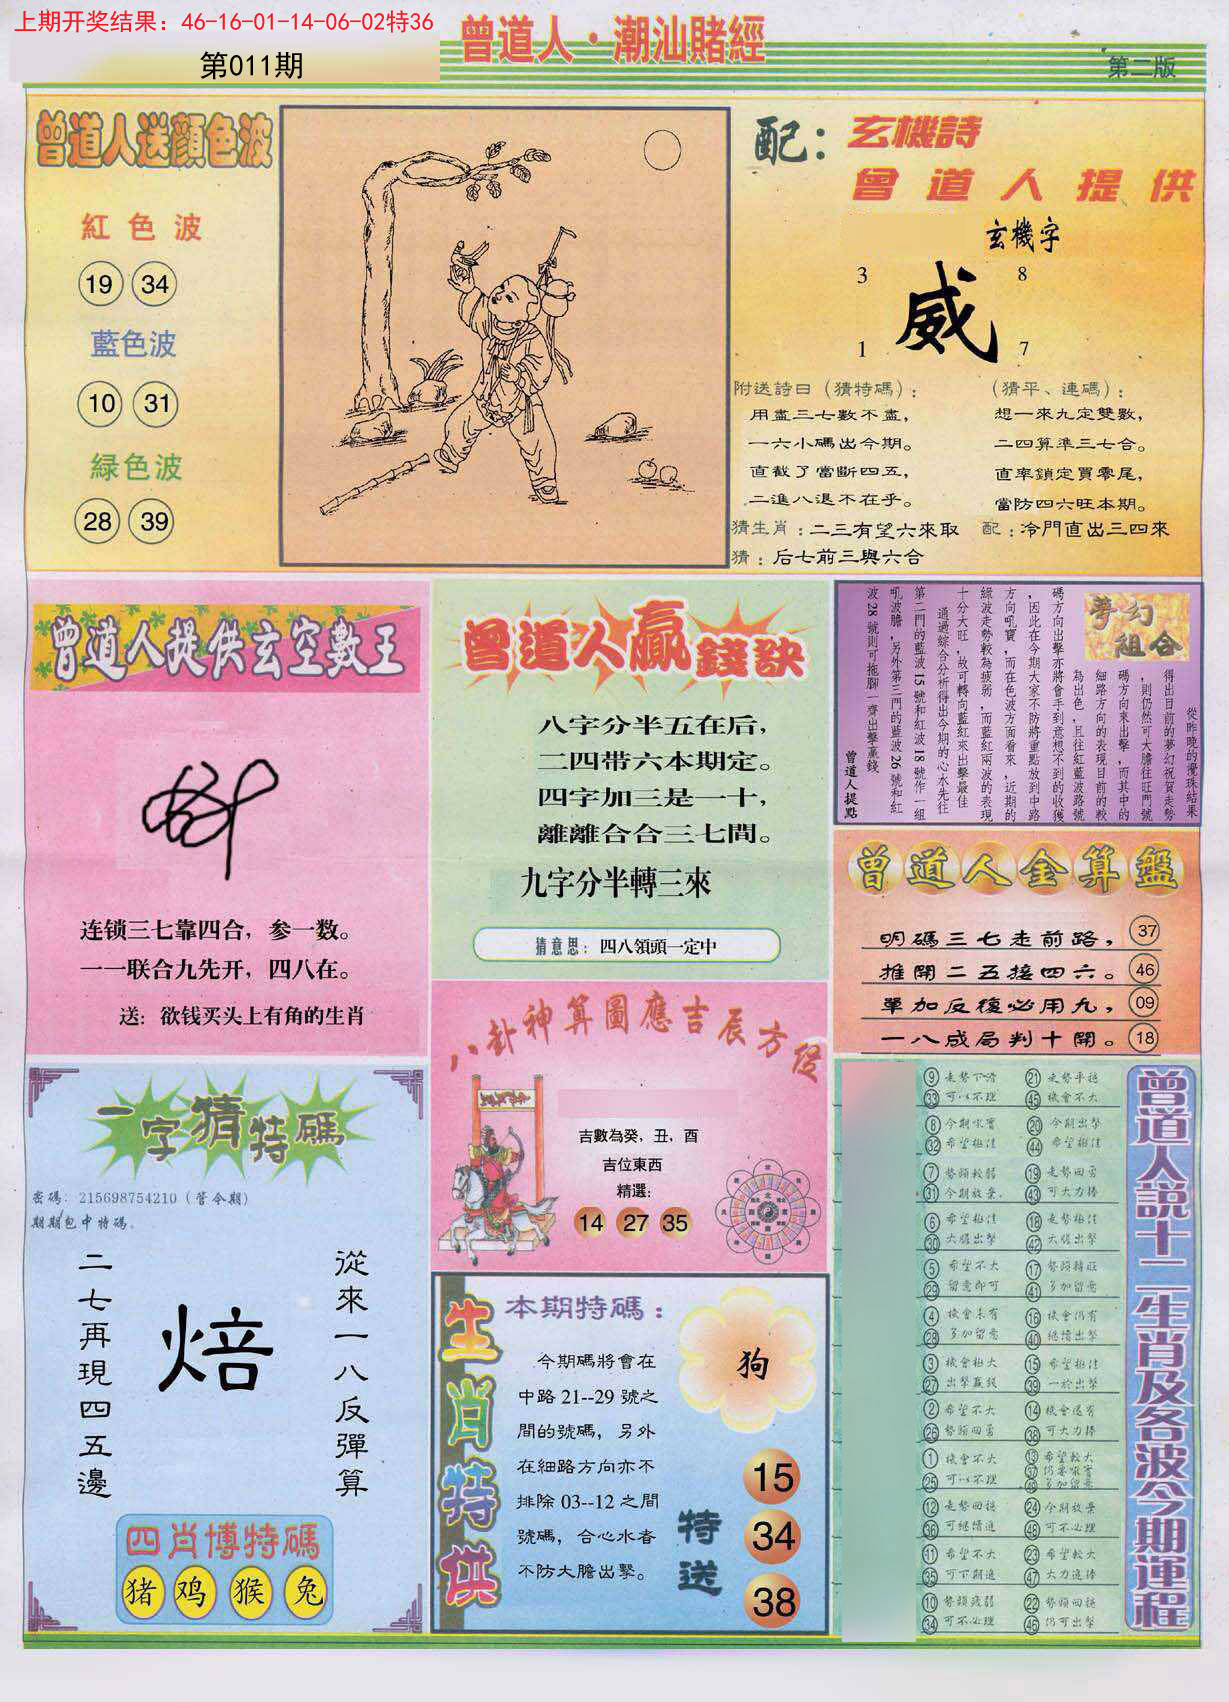 上期开奖结果：46-16-01-14-06-02特36
第011期
曾道人·潮汕賭經
第二版
曾道人送顔色波
紅色波
19 34
藍色波
10 31
緑色波
28 39
配：玄機詩
曾道人提供
玄機字
3 8
威
1 7
附送詩曰（猜特碼）：
用盡三七數不盡，
一六小碼出今期。
直截了當斷四五，
二進八退不在乎。
（猜平、連碼）：
想一來九定雙數，
二四算準三七合。
直率鎖定買零尾，
當防四六旺本期。
猜生肖：二三有望六來取
配：冷門直出三四來
猜：后七前三與六合
曾道人提供玄空數王
连锁三七靠四合，参一数。
一一联合九先开，四八在。
送：欲钱买头上有角的生肖
曾道人贏錢訣
八字分半五在后，
二四带六本期定。
四字加三是一十，
離離合合三七間。
九字分半轉三來
猜意思：四八領頭一定中
夢幻組合
從昨晚的攪珠結果
得出目前的夢幻祝賀走勢
，則仍然可大膽往旺門號
碼方向來出擊，而其中的
細路方向的表現目前的較
為出色，且往紅藍波路號
碼方向出擊亦將會手到意想不到的收獲
，因此在今期大家不防將重點放到中路
方向吼寶，而在色波方面看來，近期的
緑波走勢較為疲弱，而藍紅兩波的表現
十分大旺，故可轉向藍紅來出擊最佳
通過綜合分析得出今期的心水先往
第二門的藍波15號和紅波18號作一組
吼波膽，另外第三門的藍波26號和紅
波28號則可拖腳一齊出擊贏錢
曾道人提點
曾道人金算盤
明碼三七走前路，37
推開二五接四六。46
單加反後必用九，09
一八成局判十開。18
八卦神算圖應吉辰方位
吉數為癸，丑，酉
吉位東西
精選：
14 27 35
一字猜特碼
密碼：215698754210（管令期）
期期包中特碼。
從來一八反彈算
焙
二七再現四五邊
四肖博特碼
猪 鸡 猴 兔
生肖特供
本期特碼：
今期碼將會在
中路21--29號之
間的號碼，另外
在細路方向亦不
排除03--12之間
號碼，合心水者
不防大膽出擊。
狗
特送
15
34
38
曾道人說十二生肖及各波今期運程
9 走勢下滑 21 走勢平穩
33 可以不理 45 機會不大
8 今期吼實 20 今期出擊
32 希望極佳 44 希望極佳
7 勢頭較弱 19 走勢回勇
31 今期放棄 43 可大力捧
6 希望極佳 18 走勢極佳
30 大膽出擊 42 大膽出擊
5 希望不大 17 勢頭轉旺
29 留意即可 41 多加留意
4 機會未有 16 機會仍有
28 多加留意 40 繼續出擊
3 機會極大 15 希望極佳
27 出擊贏錢 39 一於出擊
2 希望不大 14 機會還有
26 勢頭回勇 38 可大力捧
1 機會不大 13 希望較大
25 可以不理 37 仍要吼實
49 多加留意
12 走勢回穩 24 今期放棄
36 可繼續追 48 可不必理
11 希望不大 23 希望較大
35 可下期追 47 大力追捧
10 勢頭疲弱 22 勢頭回穩
34 可不必理 46 仍可出擊